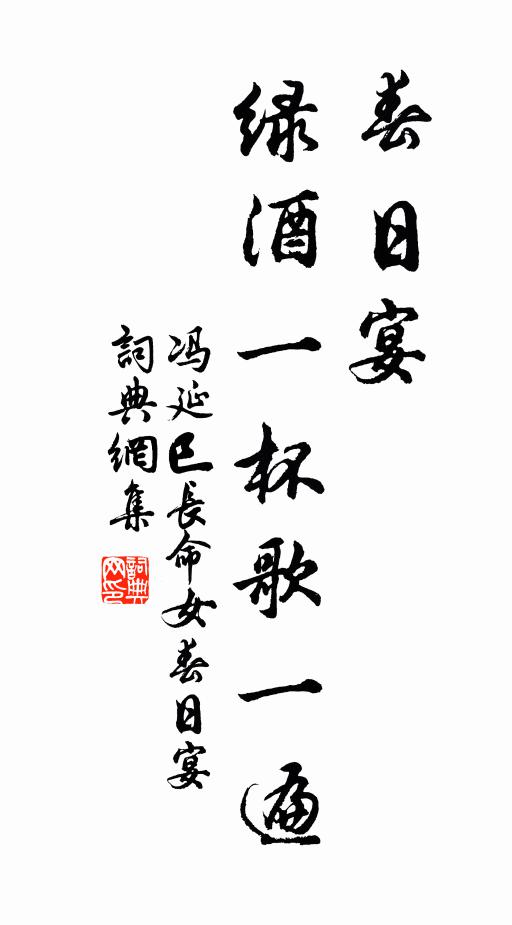 春日宴
绿酒一杯歌一遍
冯延巳长命女春日宴
詞典網集
詞典网印